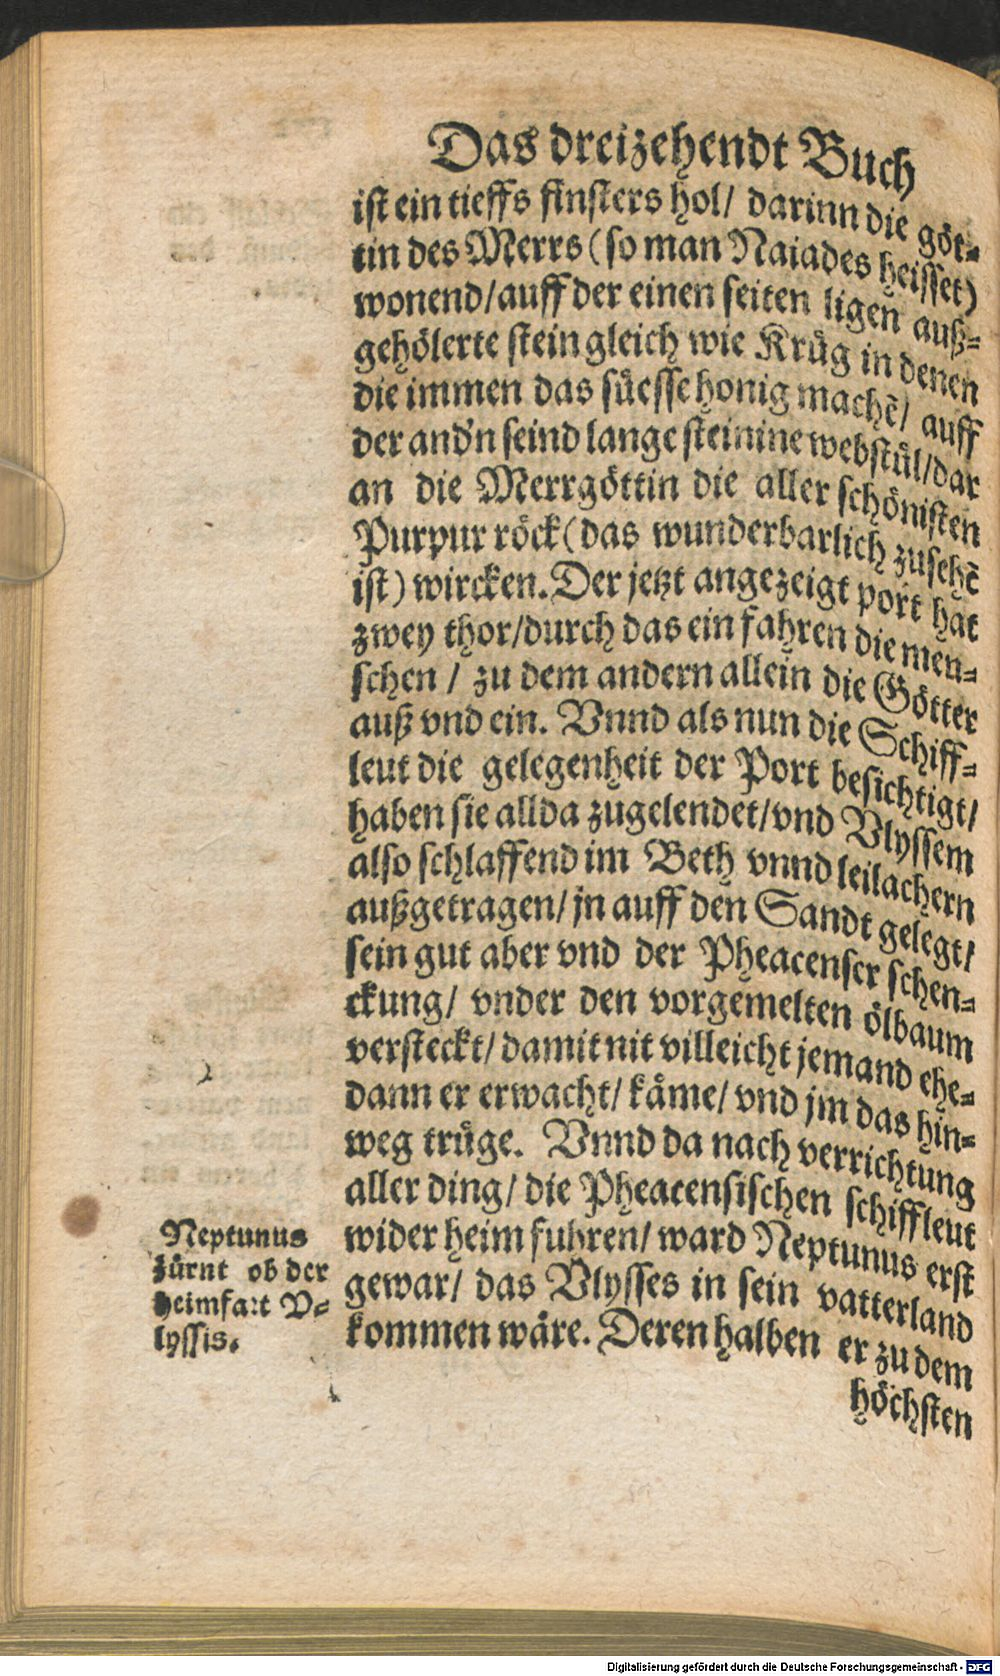 Das dreizehendt Buch
ist ein tieffs finsters hol/ darinn die göt-
tin des Merrs (so man Naiades heisset)
wonend/auff der einen seiten ligen auß-
gehölerte stein gleich wie Krüg in denen
die immen das süesse honig machē/ auff
der andn̄ seind lange steinine webstül/dar
an die Merrgöttin die aller schönisten
Purpur röck(das wunderbarlich zusehē
ist) wircken. Der jetzt angezeigt port hat
zwey thor/durch das ein fahren die men-
schen / zu dem andern allein die Götter
auß vnd ein. Vnnd als nun die Schiff-
leut die gelegenheit der Port besichtigt/
haben sie allda zugelendet/vnd Vlyssem
also schlaffend im Beth vnnd leilachern
außgetragen/ jn auff den Sandt gelegt/
sein gut aber vnd der Pheacenser schen-
ckung/ vnder den vorgemelten ölbaum
versteckt/ damit nit villeicht jemand ehe-
dann er erwacht/ käme/ vnd jm das hin-
weg trüge. Vnnd da nach verrichtung
aller ding/ die Pheacensischen schiffleut
wider heim fuhren/ ward Neptunus erst
gewar/ das Vlysses in sein vatterland
kommen wäre. Deren halben er zu dem
höchsten
Neptunus
zürnt ob der
heimfart V-
lyssis.
Digitalisierung gefördert durch die Deutsche Forschungsgemeinschaft - DFG